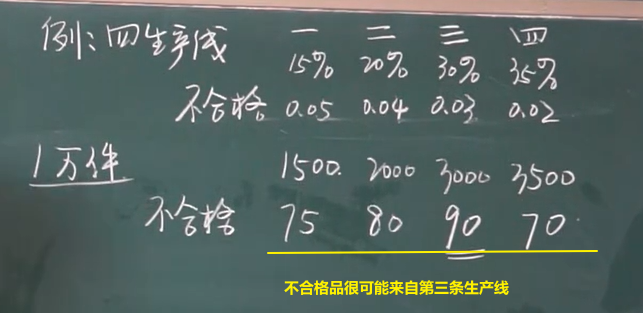 例：四生产线 一 二 三 四
15% 20% 30% 35%
不合格 0.05 0.04 0.03 0.02
1万件 1500. 2000 3000 3500
不合格 75 80 90 70
不合格品很可能来自第三条生产线